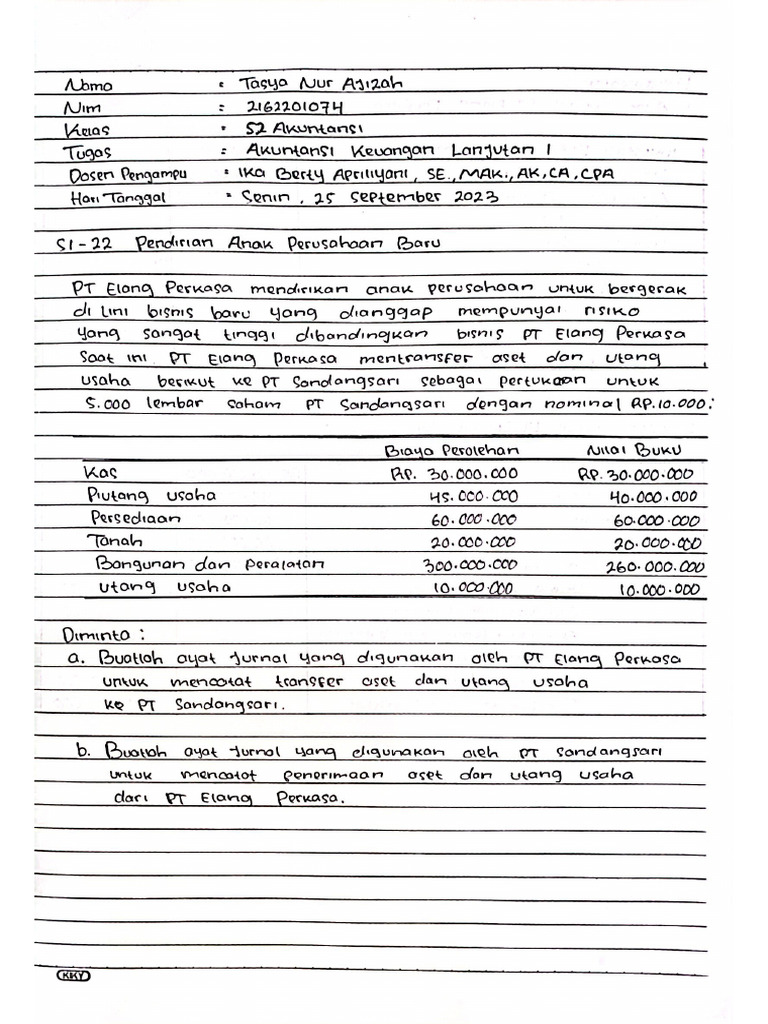 Nama : Tasya Nur Ajizah
Nim : 2162201074
Kelas : S2 Akuntansi
Tugas : Akuntansi Keuangan Lanjutan 1
Dosen Pengampu : Ika Berty Apriliyani, SE., MAK., AK, CA, CPA
Hari Tanggal : Senin, 25 September 2023
S1-22 Pendirian Anak Perusahaan Baru
PT Elang Perkasa mendirikan anak perusahaan untuk bergerak
di lini bisnis baru yang dianggap mempunyai risiko
yang sangat tinggi dibandingkan bisnis PT Elang Perkasa
Saat ini. PT Elang Perkasa mentransfer aset dan utang
usaha berikut ke PT Sandangsari sebagai pertukaan untuk
5.000 lembar saham PT Sandangsari dengan nominal RP.10.000:
Biaya Perolehan Nilai Buku
Kas RP. 30.000.000 RP. 30.000.000
Piutang usaha 45.000.000 40.000.000
Persediaan 60.000.000 60.000.000
Tanah 20.000.000 20.000.000
Bangunan dan Peralatan 300.000.000 260.000.000
utang usaha 10.000.000 10.000.000
Diminta :
a. Buatlah ayat jurnal yang digunakan oleh PT Elang Perkasa
untuk mencatat transfer aset dan utang usaha
ke PT Sandangsari.
b. Buatlah ayat jurnal yang digunakan oleh PT Sandangsari
untuk mencatat penerimaan aset dan utang usaha
dari PT Elang Perkasa.
KKY